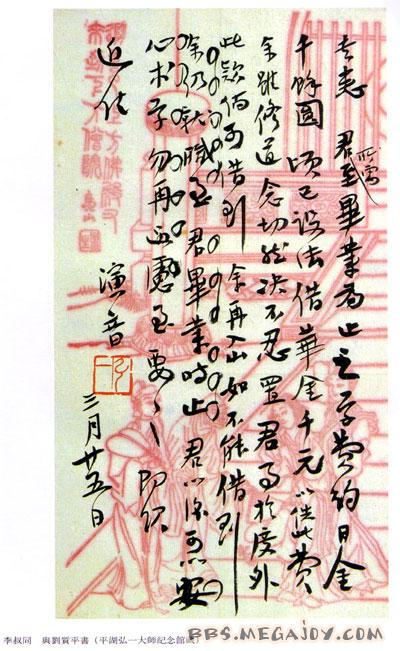 書悉 君所需至畢業為止之学費約日金
千餘圓 頃已設法借華金千元以供此費
余雖修道念切然决不忍置君事於度外
此款倘可借到 余再入山如不能借到
余仍就職至 君畢業時止 君以後可以安
心求学勿再過慮至要〻 即頌
近佳
演音
三月廿五日
李叔同 與劉質平書(平湖弘一大師紀念館藏)
BBS.MEGAJOY.COM